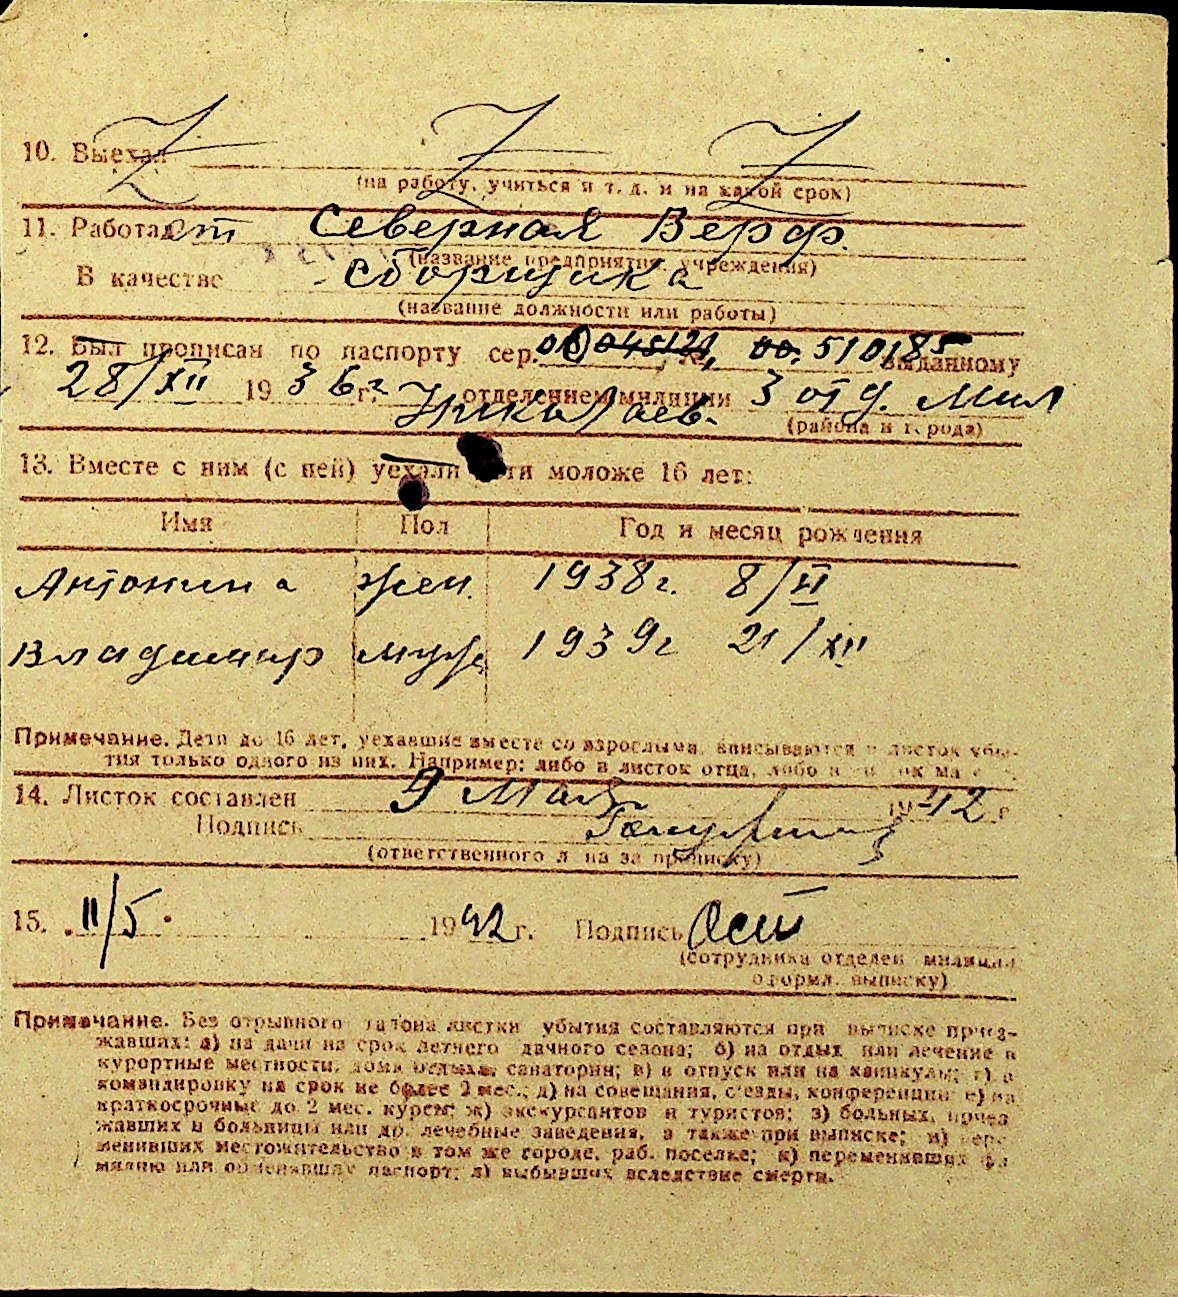 10. Выехал
(на работу, учиться и т. д. и на какой срок)
11. Работает Северная Верф.
(название предприятия, учреждения)
В качестве Сборщика
(название должности или работы)
12. Был прописан по паспорту сер. № 510185 выданному
28/XII 1936 г. отделением милиции 3 отд. Мил
Николаев. (района и города)
13. Вместе с ним (с ней) уехали дети моложе 16 лет:
Имя Пол Год и месяц рождения
Антонина жен. 1938 г. 8/VI
Владимир муж 1939 г 21/XII
Примечание. Дети до 16 лет, уехавшие вместе со взрослыми, вписываются в листок убы-
тия только одного из них. Например: либо в листок отца, либо в листок ма
14. Листок составлен 9 Мая 1942 г
Подпись
(ответственного лица за прописку)
15. 11/5 1942 г. Подпись
(сотрудника отделен. милиции
оформл. выписку)
Примечание. Без отрывного талона листки убытия составляются при выписке приез-
жавших: а) на дачи на срок летнего дачного сезона; б) на отдых или лечение в
курортные местности, дома отдыха, санатории; в) в отпуск или на каникулы; г) в
командировку на срок не более 2 мес.; д) на совещания, съезды, конференции; е) на
краткосрочные до 2 мес. курсы; ж) экскурсантов и туристов; з) больных, приез
жавших в больницы или др. лечебные заведения, а также при выписке; и) пере-
менивших местожительство в том же городе, раб. поселке; к) переменивших фа
милию или обменявших паспорт; л) выбывших вследствие смерти.